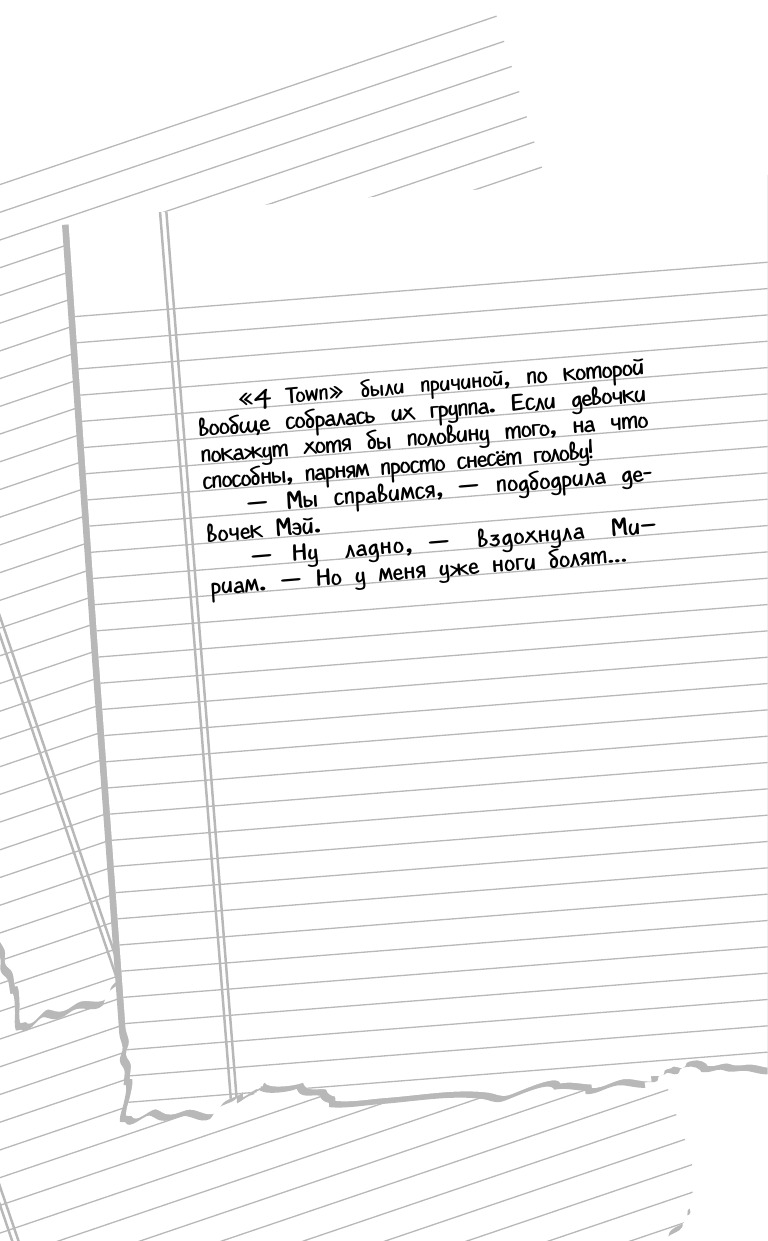 «4 Town» были причиной, по которой
вообще собралась их группа. Если девочки
покажут хотя бы половину того, на что
способны, парням просто снесёт голову!
— Мы справимся, — подбодрила де-
вочек Мэй.
— Ну ладно, — вздохнула Ми-
риам. — Но у меня уже ноги болят...